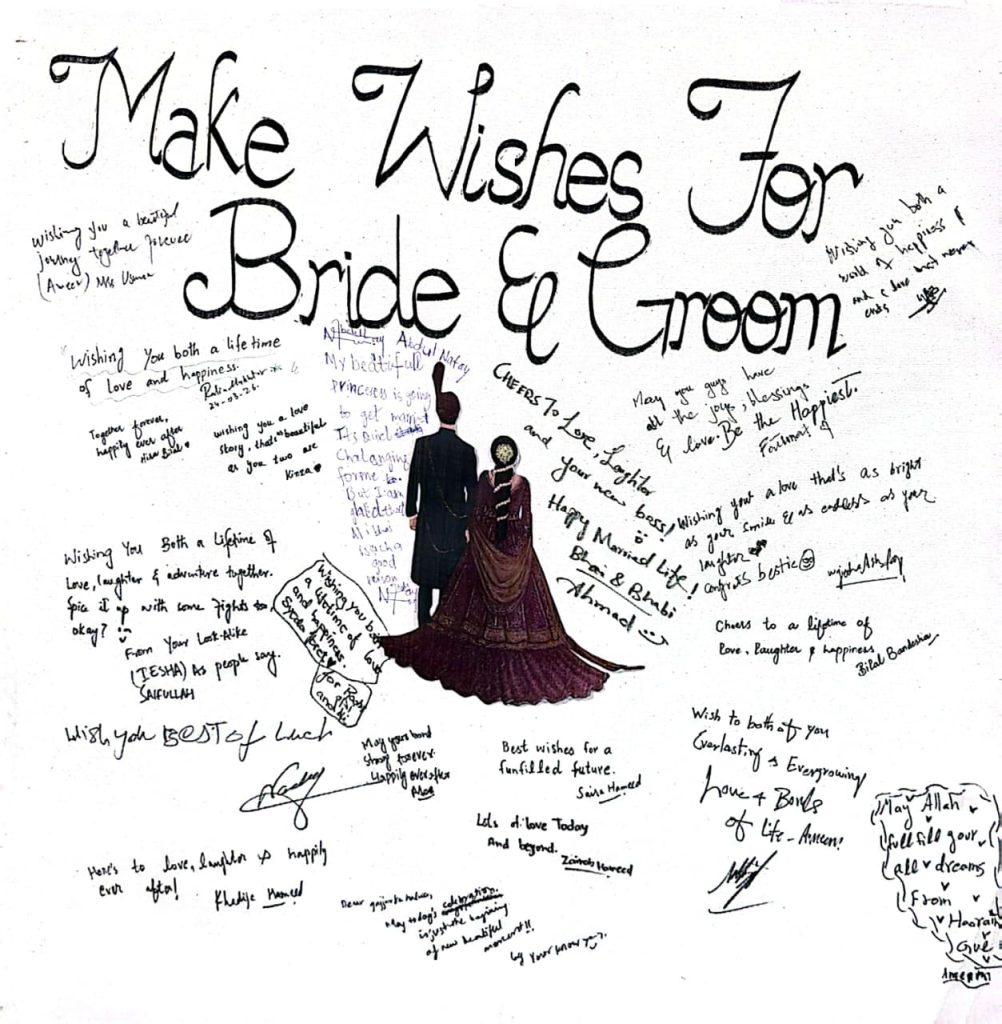 Make Wishes For
Bride & Groom
Wishing you a beautiful
journey together forever
(Ameen) Mrs Usman
Wishing you both a
world of happiness &
and a love that never
ends
Wishing You both a lifetime
of love and happiness.
24-03-25.
Together forever,
happily ever after
Hira Bilal
wishing you a love
story, that's beautiful
as you two are
Kinza
Abdul Nafay
My beatifull
princeress is going
to get married
Its a riel
Chalanging
for me to.
But I am
glad that
good
reason
CHEERS To Love, Laughter
and your new boss!
Happy Married Life!
Bhai & Bhabi
Ahmad
May you guys have
all the joys, blessings
& love. Be the Happiest.
Wishing your a love that's as bright
as your smile & as endless as your
laughter
congrats bestie
wajeeha Ashfaq
Wishing You Both a Lifetime of
Love, laughter & adventure together.
Spice it up with some fights to
okay?
From Your Look-Alike
(IESHA) As people say.
SAIFULLAH
Wishing you both
a lifetime of love
and happiness.
for
and
Cheers to a lifetime of
love, laughter & happiness.
Bilal Bandesha
Wish you BEST of Luck
May your bond
strong forever.
Happily ever after
Best wishes for a
funfilled future.
Saira Hameed
Wish to both of you
Everlasting & Evergrowing
Love & Bonds
of Life - Ameen!
Lots of love Today
And beyond.
Zainab Hameed
May Allah
full fill your
all dreams
From
Give
Ameen
Here's to love, laughter & happily
ever after!
Khadija Hameed
Dear
May today's celebration
is just the begining
of new beautiful
moments!!
by your know you?